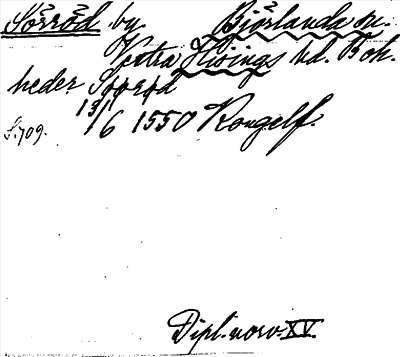 Sörröd by Björlanda sn.
Västra Hisings hd. Boh.
heder Sörröd
13/6 1550 Kongelf.
S. 709.
Dipl. norv. XV.